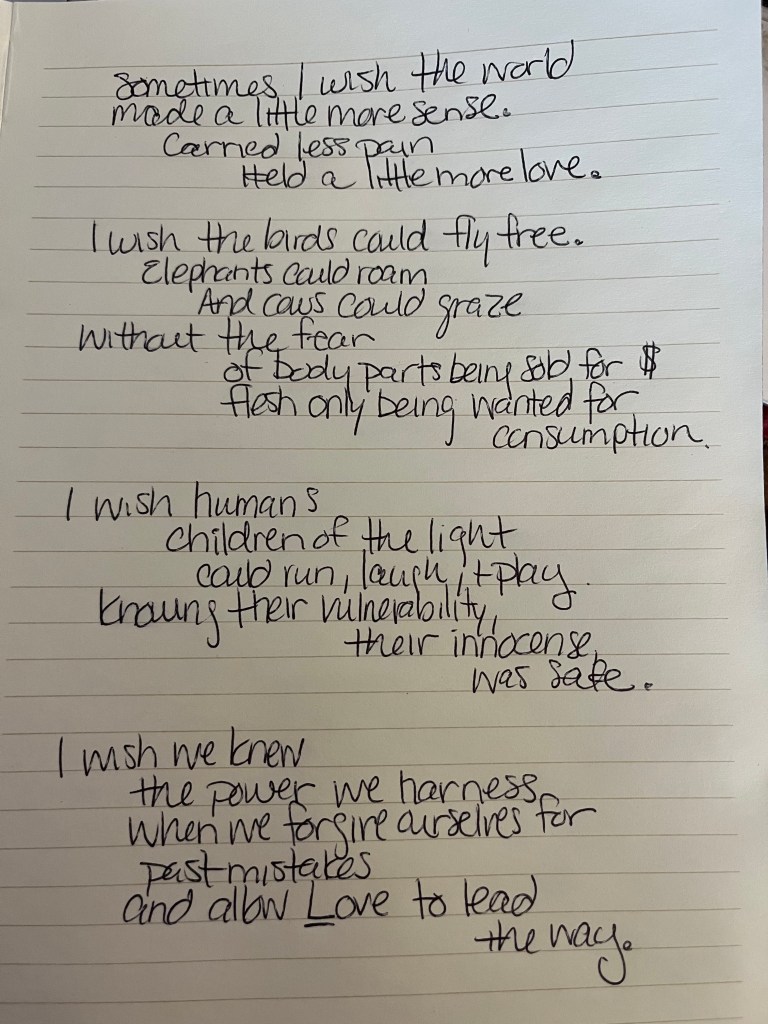 Sometimes I wish the world
made a little more sense.
Carried less pain
Held a little more love.
I wish the birds could fly free.
Elephants could roam
And cows could graze
Without the fear
of body parts being sold for $
flesh only being wanted for
consumption.
I wish humans
children of the light
could run, laugh, + play.
Knowing their vulnerability,
their innocense,
was safe.
I wish we knew
the power we harness
when we forgive ourselves for
past mistakes
and allow Love to lead
the way.